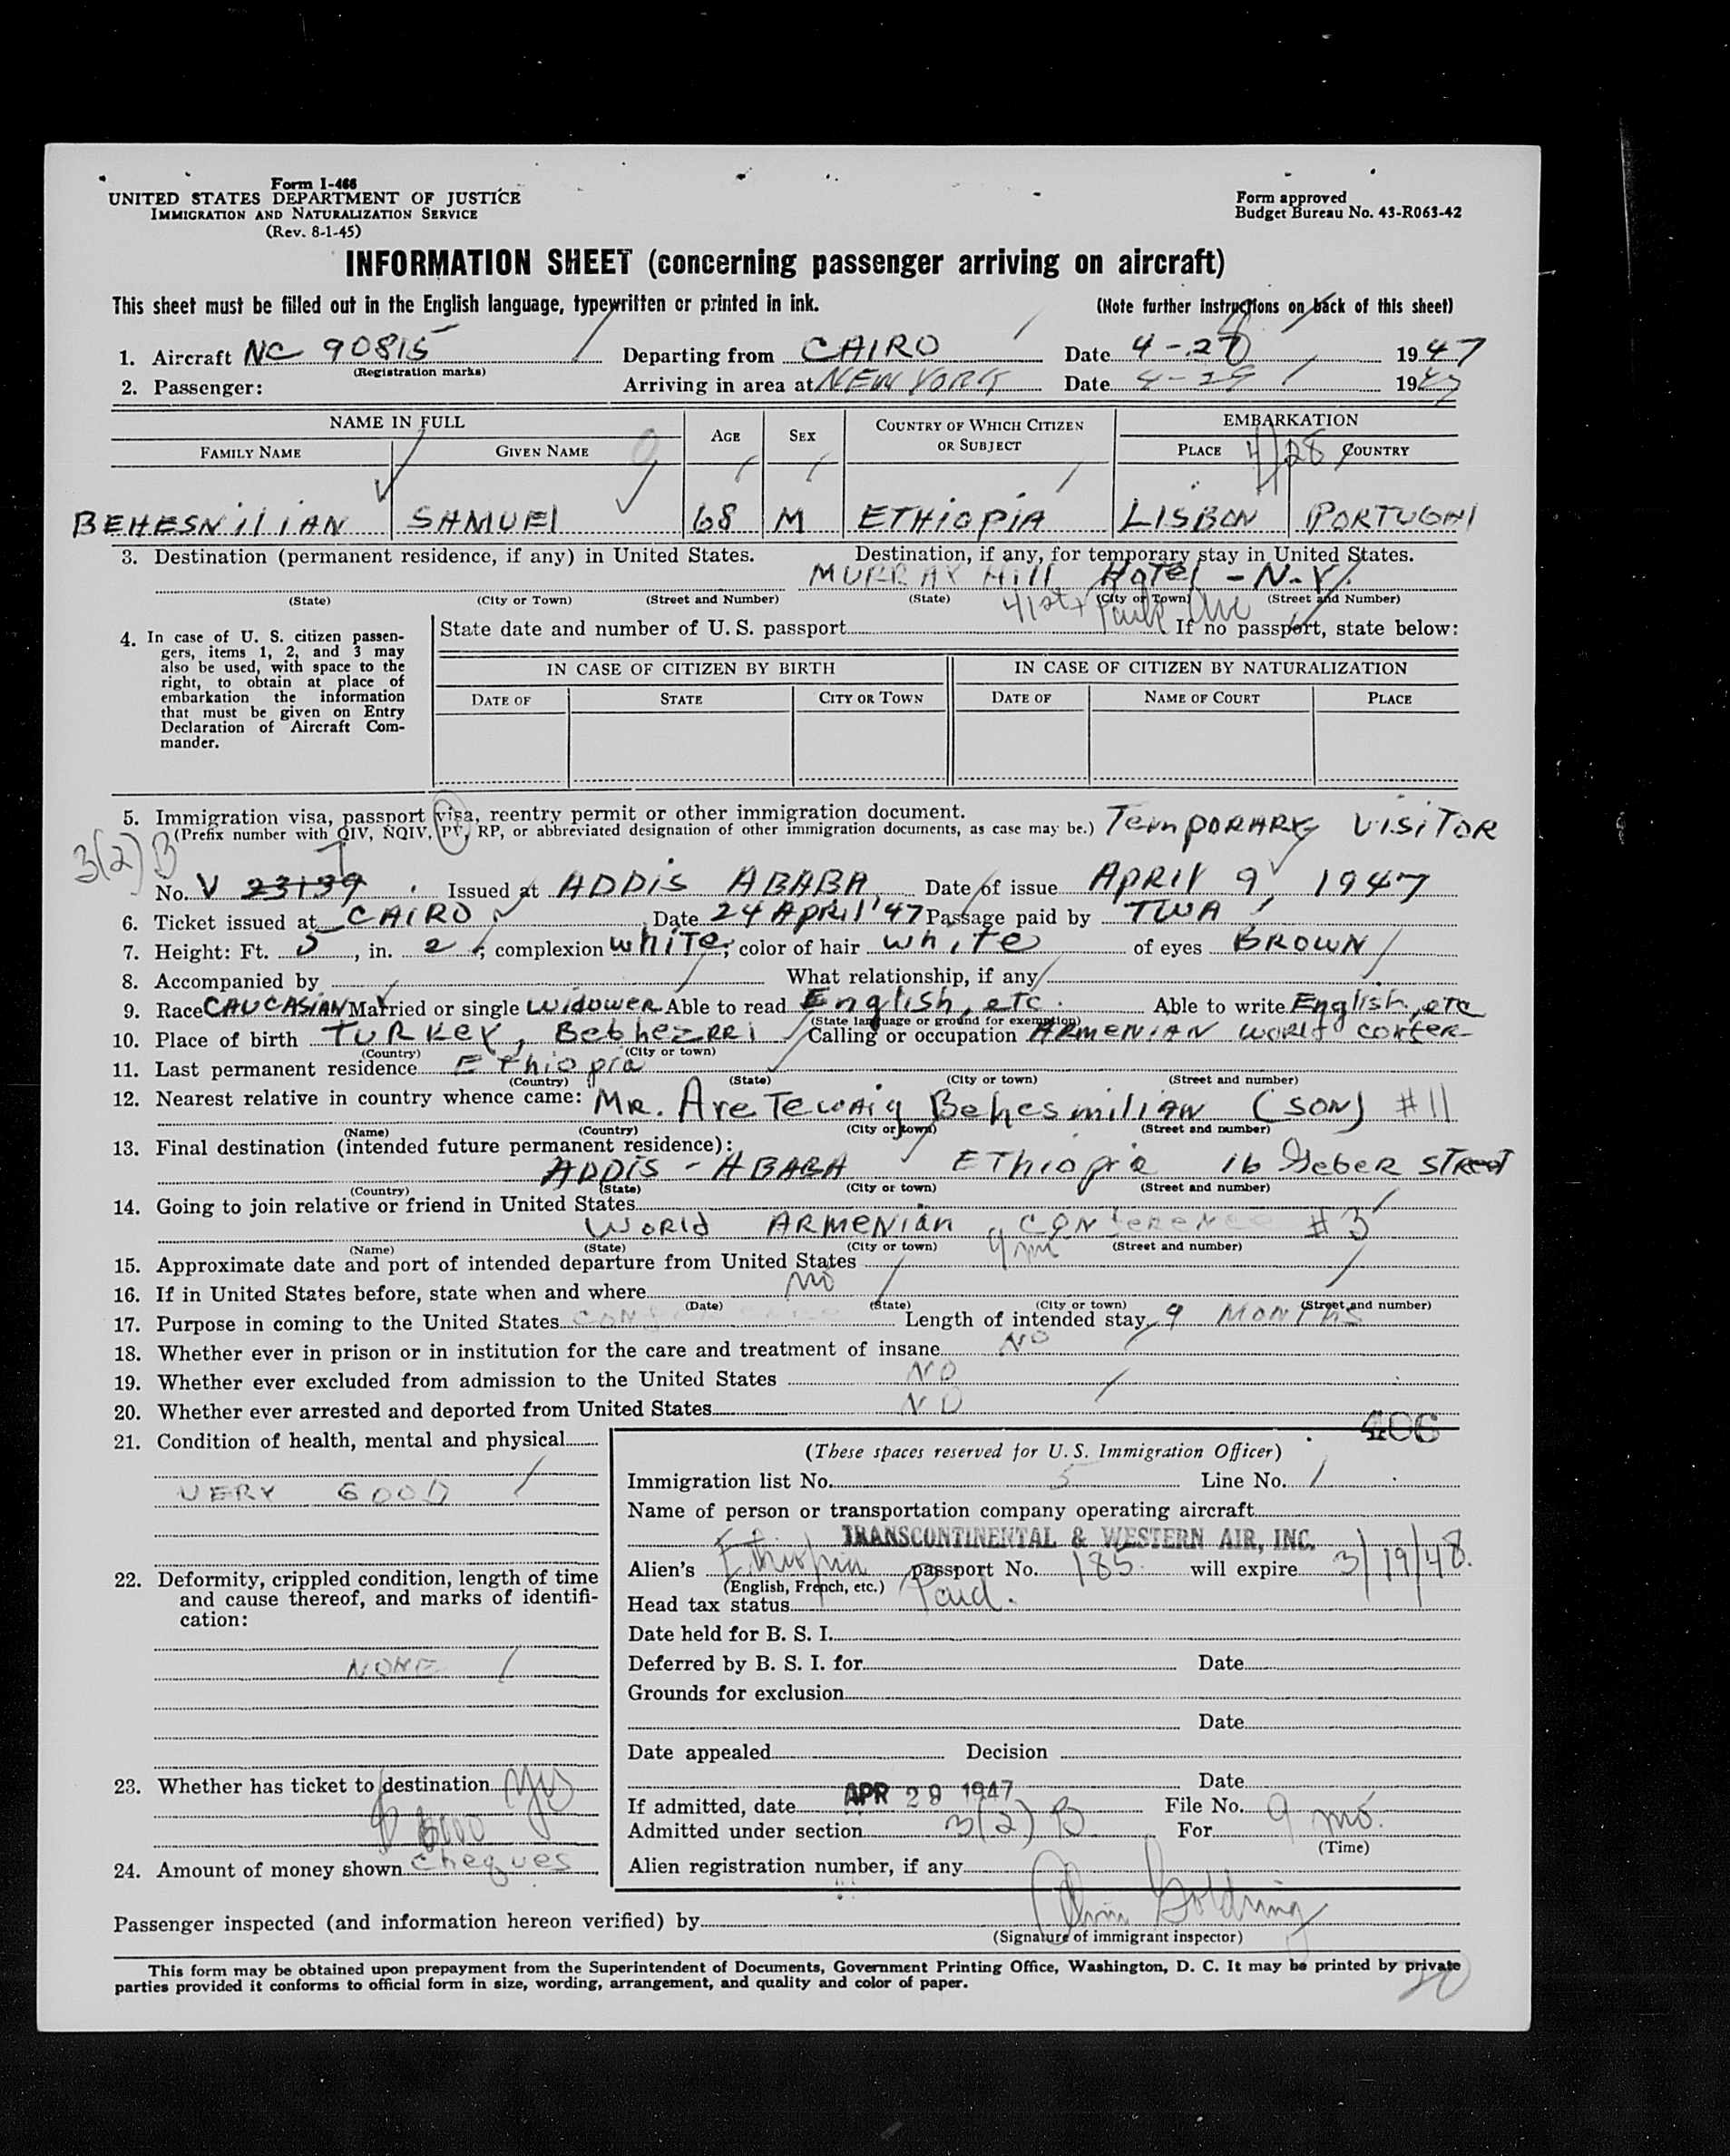 Form I-466
UNITED STATES DEPARTMENT OF JUSTICE
IMMIGRATION AND NATURALIZATION SERVICE
(Rev. 8-1-45)
Form approved
Budget Bureau No. 43-R063-42
INFORMATION SHEET (concerning passenger arriving on aircraft)
This sheet must be filled out in the English language, typewritten or printed in ink. (Note further instructions on back of this sheet)
1. Aircraft NC 90815 Departing from CAIRO Date 4-28 1947
(Registration marks)
2. Passenger: Arriving in area at NEW YORK Date 4-29 1947
NAME IN FULL AGE SEX COUNTRY OF WHICH CITIZEN OR SUBJECT EMBARKATION
FAMILY NAME GIVEN NAME PLACE 4/28 COUNTRY
BEHESNILIAN SAMUEl 68 M ETHIOPIA LISBON PORTUGAl
3. Destination (permanent residence, if any) in United States. Destination, if any, for temporary stay in United States.
MURRAY Hill HoTEl - N.Y.
(State) (City or Town) (Street and Number) (State) (City or Town) (Street and Number)
41st + Park Ave
4. In case of U. S. citizen passengers, items 1, 2, and 3 may also be used, with space to the right, to obtain at place of embarkation the information that must be given on Entry Declaration of Aircraft Commander.
State date and number of U. S. passport If no passport, state below:
IN CASE OF CITIZEN BY BIRTH IN CASE OF CITIZEN BY NATURALIZATION
DATE OF STATE CITY OR TOWN DATE OF NAME OF COURT PLACE
5. Immigration visa, passport visa, reentry permit or other immigration document.
(Prefix number with QIV, NQIV, PV, RP, or abbreviated designation of other immigration documents, as case may be.) TEmPORARY VISITOR
3(2) B
No. V 23139 Issued at ADDIS ABABA Date of issue APRIl 9, 1947
6. Ticket issued at CAIRO Date 24 APRIl '47 Passage paid by TWA
7. Height: Ft. 5, in. 2; complexion whiTe; color of hair white of eyes BROWN
8. Accompanied by What relationship, if any
9. Race CAUCASIAN Married or single WidowER Able to read English, etc. Able to write English, etc
(State language or ground for exemption)
10. Place of birth TURKEY, BebhezRRi Calling or occupation ARMENIAN WORLd CONfER-
(Country) (City or town)
11. Last permanent residence EThiopia
(Country) (State) (City or town) (Street and number)
12. Nearest relative in country whence came: MR. Behesnilian (SON) #11
(Name) (Country) (City or town) (Street and number)
13. Final destination (intended future permanent residence):
ADDIS-ABABA EThiopia 16 StReet
(Country) (State) (City or town) (Street and number)
14. Going to join relative or friend in United States
WORld ARMENian CONference #3
(Name) (State) (City or town) (Street and number)
15. Approximate date and port of intended departure from United States 9 mo
16. If in United States before, state when and where No
(Date) (State) (City or town) (Street and number)
17. Purpose in coming to the United States CONFERENCE Length of intended stay 9 MONTHS
18. Whether ever in prison or in institution for the care and treatment of insane NO
19. Whether ever excluded from admission to the United States NO
20. Whether ever arrested and deported from United States NO
406
21. Condition of health, mental and physical
VERY GOOD
22. Deformity, crippled condition, length of time and cause thereof, and marks of identification:
NONE
23. Whether has ticket to destination yes
24. Amount of money shown cheques
(These spaces reserved for U. S. Immigration Officer)
Immigration list No. 5 Line No. 1
Name of person or transportation company operating aircraft
TRANSCONTINENTAL & WESTERN AIR, INC.
Alien's Ethiopia passport No. 185 will expire 3/19/48.
(English, French, etc.)
Head tax status Paid.
Date held for B. S. I.
Deferred by B. S. I. for Date
Grounds for exclusion
Date
Date appealed Decision
Date
If admitted, date APR 29 1947 File No.
Admitted under section 3(2) B For 9 mo.
(Time)
Alien registration number, if any
Passenger inspected (and information hereon verified) by
(Signature of immigrant inspector)
This form may be obtained upon prepayment from the Superintendent of Documents, Government Printing Office, Washington, D. C. It may be printed by private
parties provided it conforms to official form in size, wording, arrangement, and quality and color of paper.